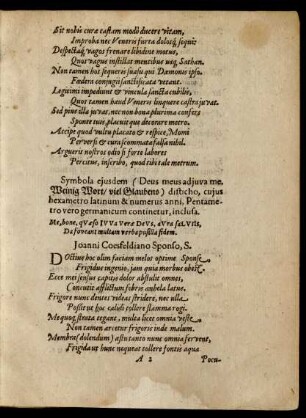 Sit nobis curæ castam modò ducere vitam,
Improba nec Veneris furta dolosq́; sequi:
Despectaq́; vagos frenare libidine motus,
Quos vagus instillat mentibus usq; Sathan.
Non tamen hos sequeris suasus qui Dæmonis ipso.
Fœdera conjugij sanctificata vetant.
Legitimi impediunt &amp; vincula sancta cubilis,
Quos tamen haud Veneris linquere castra juvat.
Sed pius illa juvas, nec non bona plurima confers
Sponte tuis, placuit quæ decorare metro.
Accipe quod vultu placato &amp; respice, Momi
Perversi &amp; cura scommata falsa nihil.
Argueris nostros odio si forte labores
Percitus, inscribo, quod tibi tale metrum.
Symbola ejusdem (Deus meus adjuva me.
Wenig Wort viel Glaubens) disticho, cujus
hexametro latinum &amp; numerus anni. Pentame-
tro vero germanicum continetur, inclusa.
Me, bone, qVæso IVVa Vere DeVs, eVro sat.
Da foveant multam verba pusilla fidem.
Joanni Coesfeldiano Sponso, S.
Doctius hoc olim faciam melos optime Sponse
Frigidus ingenio, jam quia morbus obest:
Ecce mei jensus capitis dolor abstulit omnes,
Concutit afflictum febris anhela latus.
Frigore nunc dentes videas stridere, nec ulla
Possit ut hoc calidi tollere flamma rogi.
Meq́uoq; strata tegant, multa licet omnia veste
Non tamen arcetur frigoris inde malum.
Membra (dolendum) æstu tanto nunc omnia fervent,
Frigida ut hunc nequeat tollere fontis aqua
A 2 Pocu-